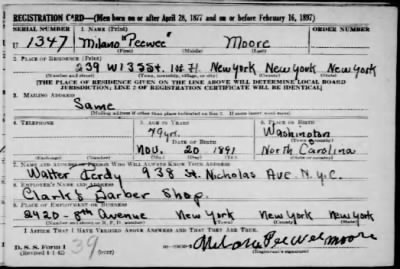 REGISTRATION CARD—(Men born on or after April 28, 1877 and on or before February 16, 1897)
SERIAL NUMBER 1. NAME (Print) ORDER NUMBER
U 1347 Milano "Peewee" Moore
(First) (Middle) (Last)
2. PLACE OF RESIDENCE (Print)
239 W 133 St. New York New York New York
(Number and street) (Town, township, village, or city) (County) (State)
[THE PLACE OF RESIDENCE GIVEN ON THE LINE ABOVE WILL DETERMINE LOCAL BOARD
JURISDICTION; LINE 2 OF REGISTRATION CERTIFICATE WILL BE IDENTICAL]
3. MAILING ADDRESS
Same
[Mailing address if other than place indicated on line 2. If same insert word same]
4. TELEPHONE 5. AGE IN YEARS 6. PLACE OF BIRTH
49 yr. Washington
DATE OF BIRTH (Town or county)
Nov. 20 1891 North Carolina
(Mo.) (Day) (Yr.) (State or country)
7. NAME AND ADDRESS OF PERSON WHO WILL ALWAYS KNOW YOUR ADDRESS
Walter 938 St. Nicholas Ave. N.Y.C.
8. EMPLOYER'S NAME AND ADDRESS
Clark's Barber Shop.
9. PLACE OF EMPLOYMENT OR BUSINESS
2420-8th Avenue New York New York
(Number and street or R. F. D. number) (Town) (County) (State)
I AFFIRM THAT I HAVE VERIFIED ABOVE ANSWERS AND THAT THEY ARE TRUE.
D. S. S. Form 1
(Revised 4-1-42) (over) 39 Milano Peewee Moore